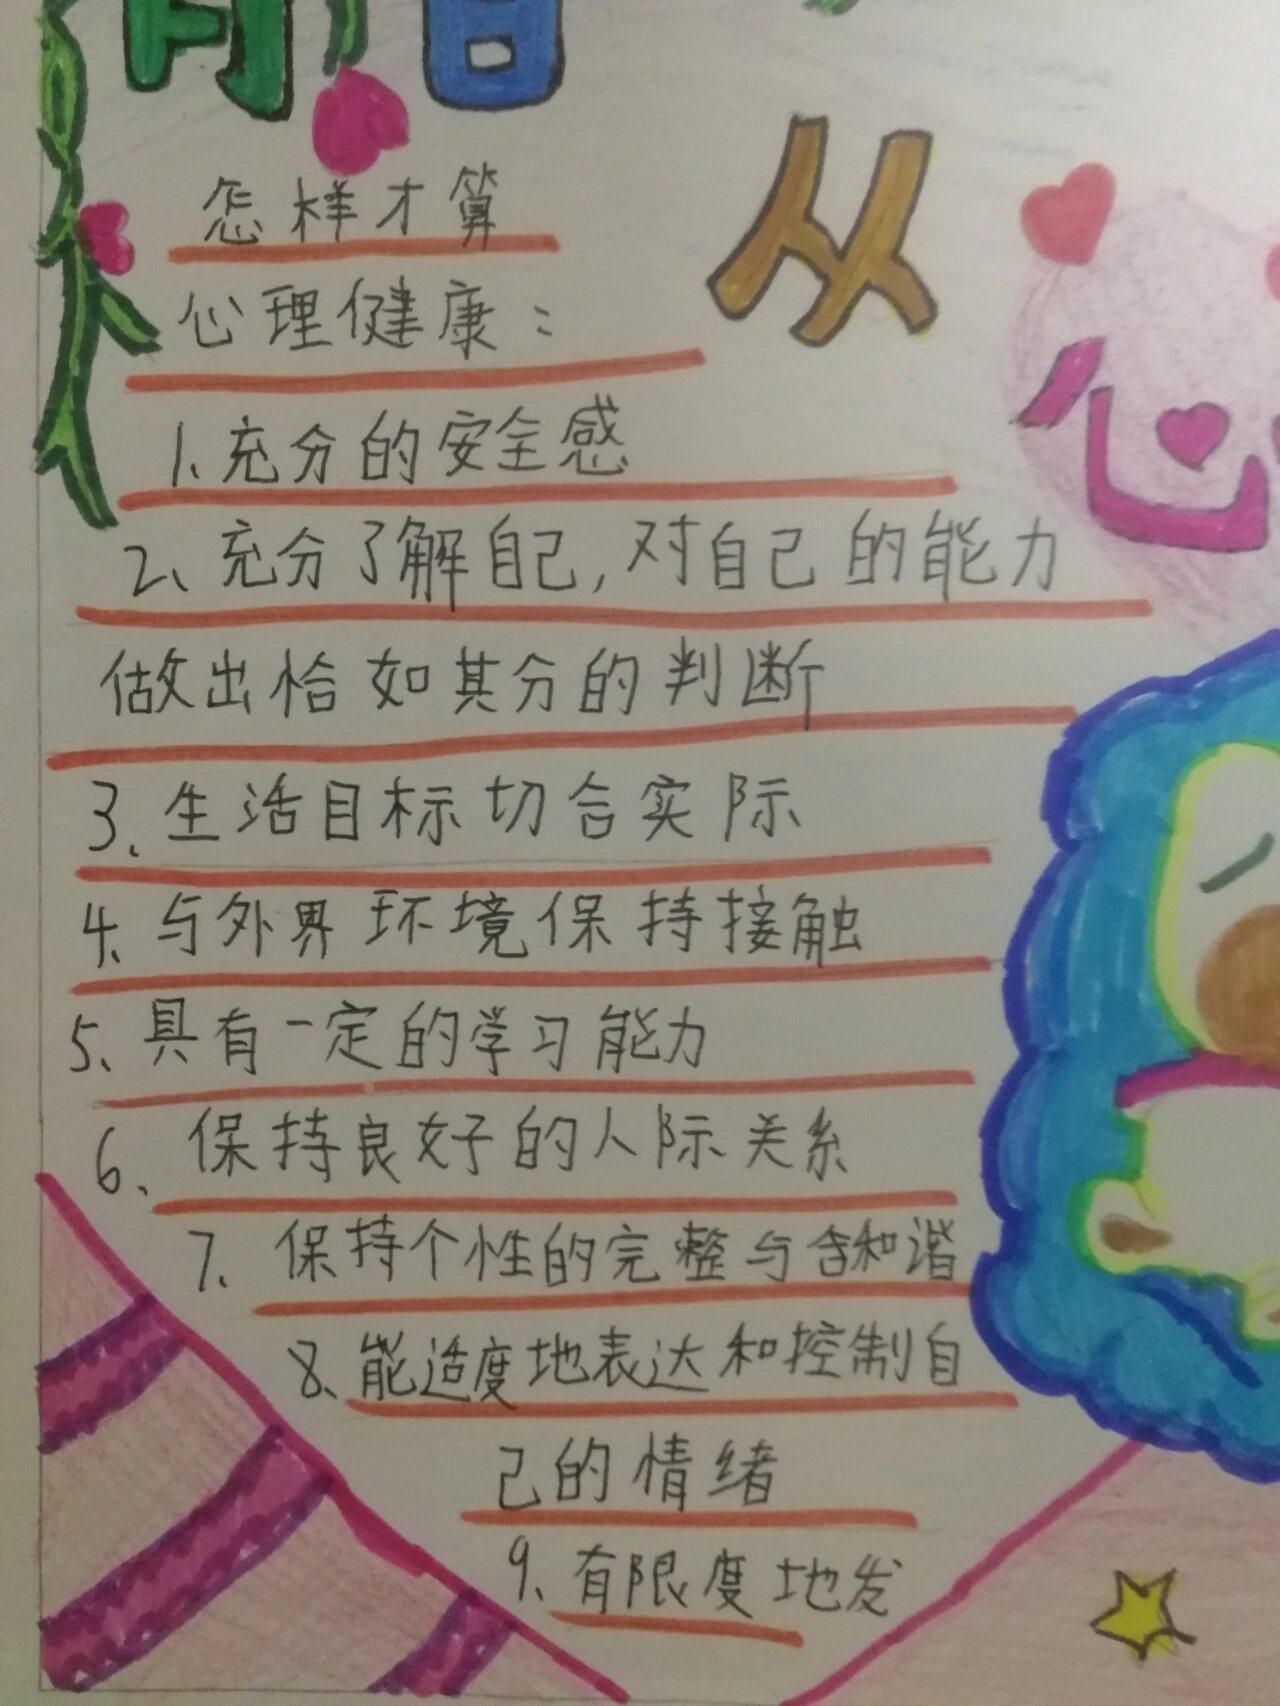 从
心
怎样才算
心理健康：
1、充分的安全感
2、充分了解自己,对自己的能力
做出恰如其分的判断
3、生活目标切合实际
4、与外界环境保持接触
5、具有一定的学习能力
6、保持良好的人际关系
7、保持个性的完整与含和谐
8、能适度地表达和控制自
己的情绪
9、有限度地发